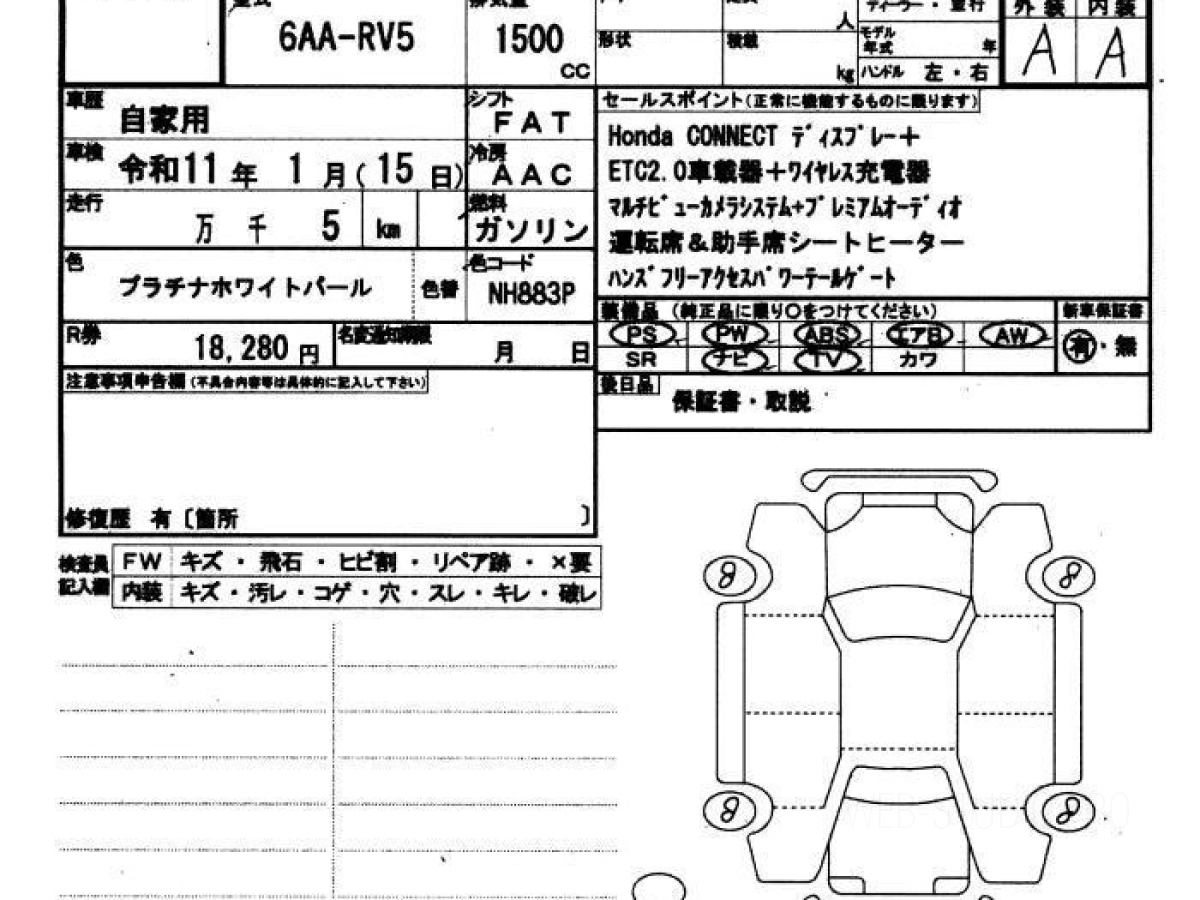 6AA-RV5
1500
CC
人
形状
積載
kg
ディーラー・並行
モデル年式
年
ハンドル 左・右
外装 内装
A A
車歴
自家用
シフト
FAT
車検
令和11年 1月(15日)
冷房
AAC
走行
万 千 5 km
燃料
ガソリン
色
プラチナホワイトパール
色替
色コード
NH883P
R券
18,280円
名変通知期限
月 日
注意事項申告欄(不具合内容等は具体的に記入して下さい)
修復歴 有〔箇所 〕
セールスポイント(正常に機能するものに限ります)
Honda CONNECT ディスプレー+
ETC2.0車載器+ワイヤレス充電器
マルチビューカメラシステム+プレミアムオーディオ
運転席&助手席シートヒーター
ハンズフリーアクセスパワーテールゲート
装備品 (純正品に限り〇をつけてください)
新車保証書
PS PW ABS エアB AW
SR ナビ TV カワ
有・無
後日品
保証書・取説
検査員記入欄
FW キズ・飛石・ヒビ割・リペア跡・×要
内装 キズ・汚レ・コゲ・穴・スレ・キレ・破レ
8 8
8 8